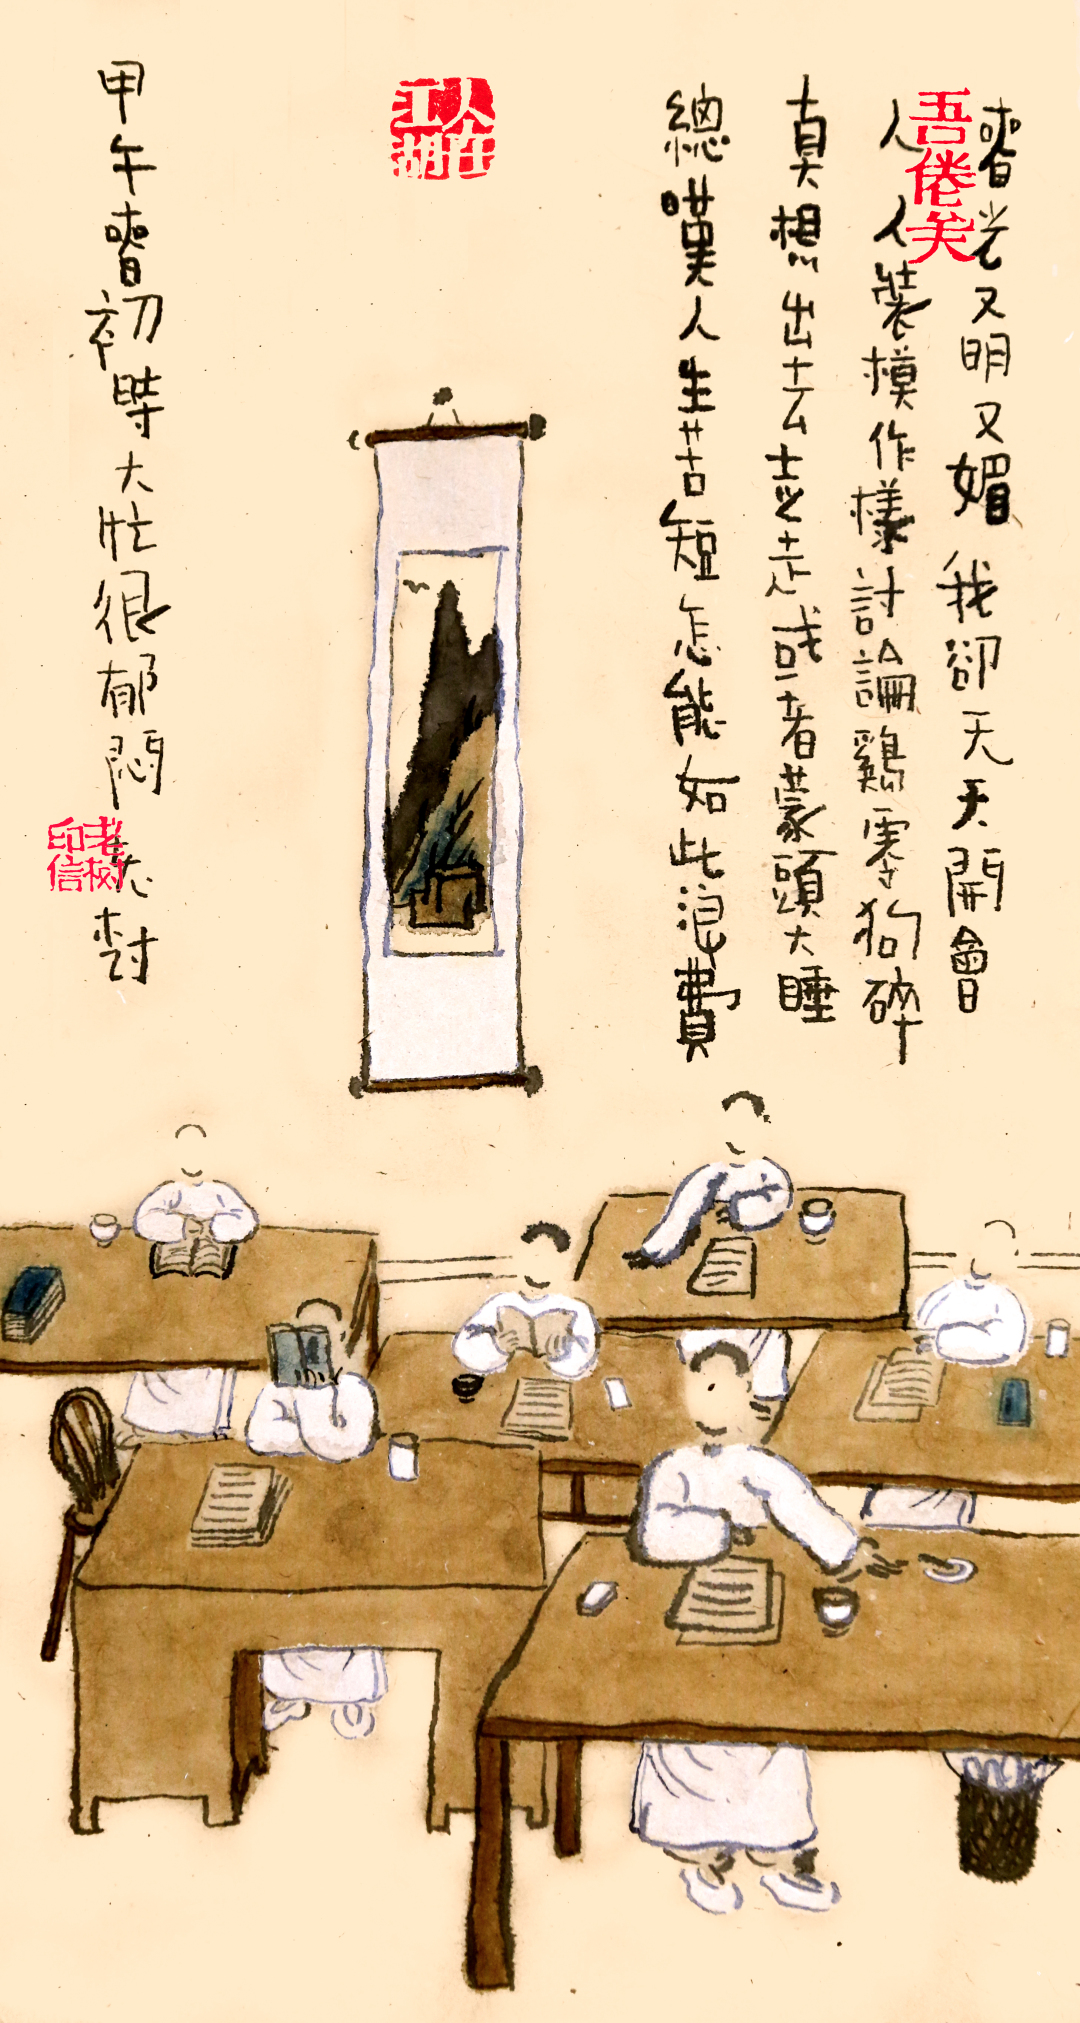 春光又明又媚 我卻天天開會
人人裝模作樣討論鷄零狗碎
真想出去走走或者蒙頭大睡
總嘆人生苦短怎能如此浪費
吾倦矣
人在江湖
甲午春初時大忙很郁悶 老樹
老树印信